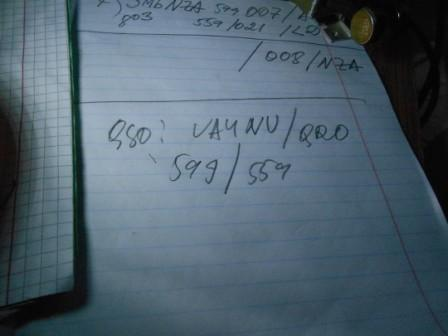 7) SM6NZA 599 007/A
803 559/021 /LSD
/008/NZA
QSO: UA4NU/QRO
599/559